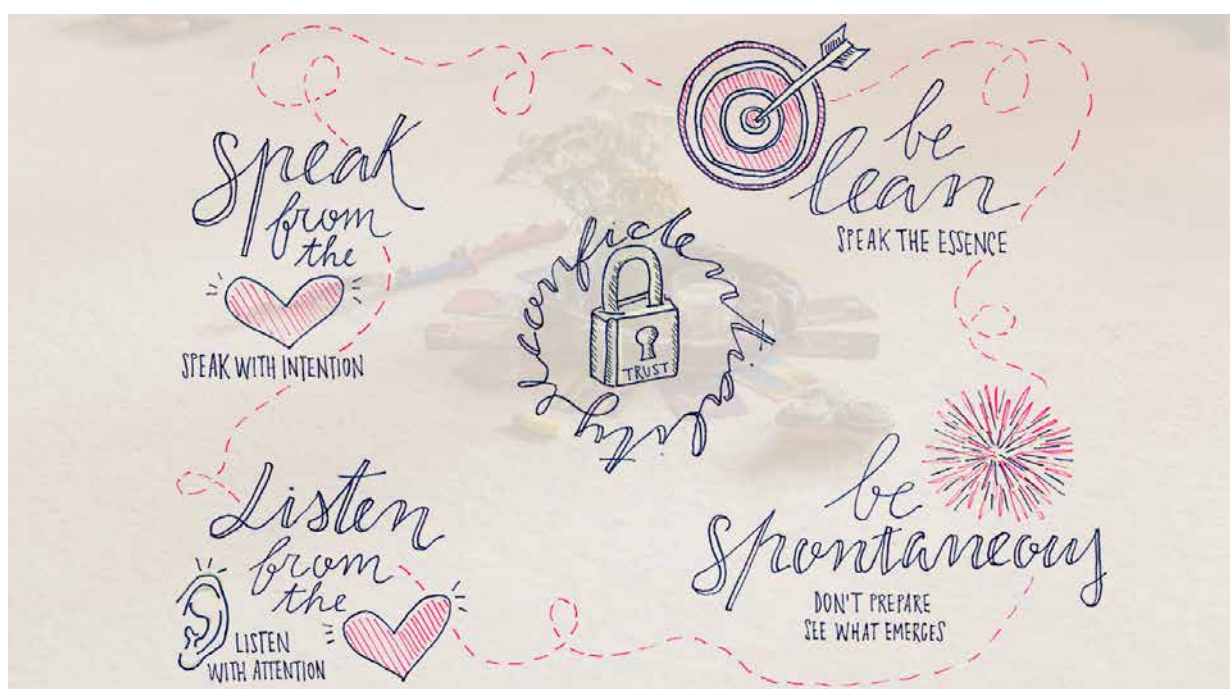 Speak
from
the
SPEAK WITH INTENTION
be
lean
SPEAK THE ESSENCE
confidentiality
TRUST
Listen
from
the
LISTEN
WITH ATTENTION
be
spontaneous
DON'T PREPARE
SEE WHAT EMERGES